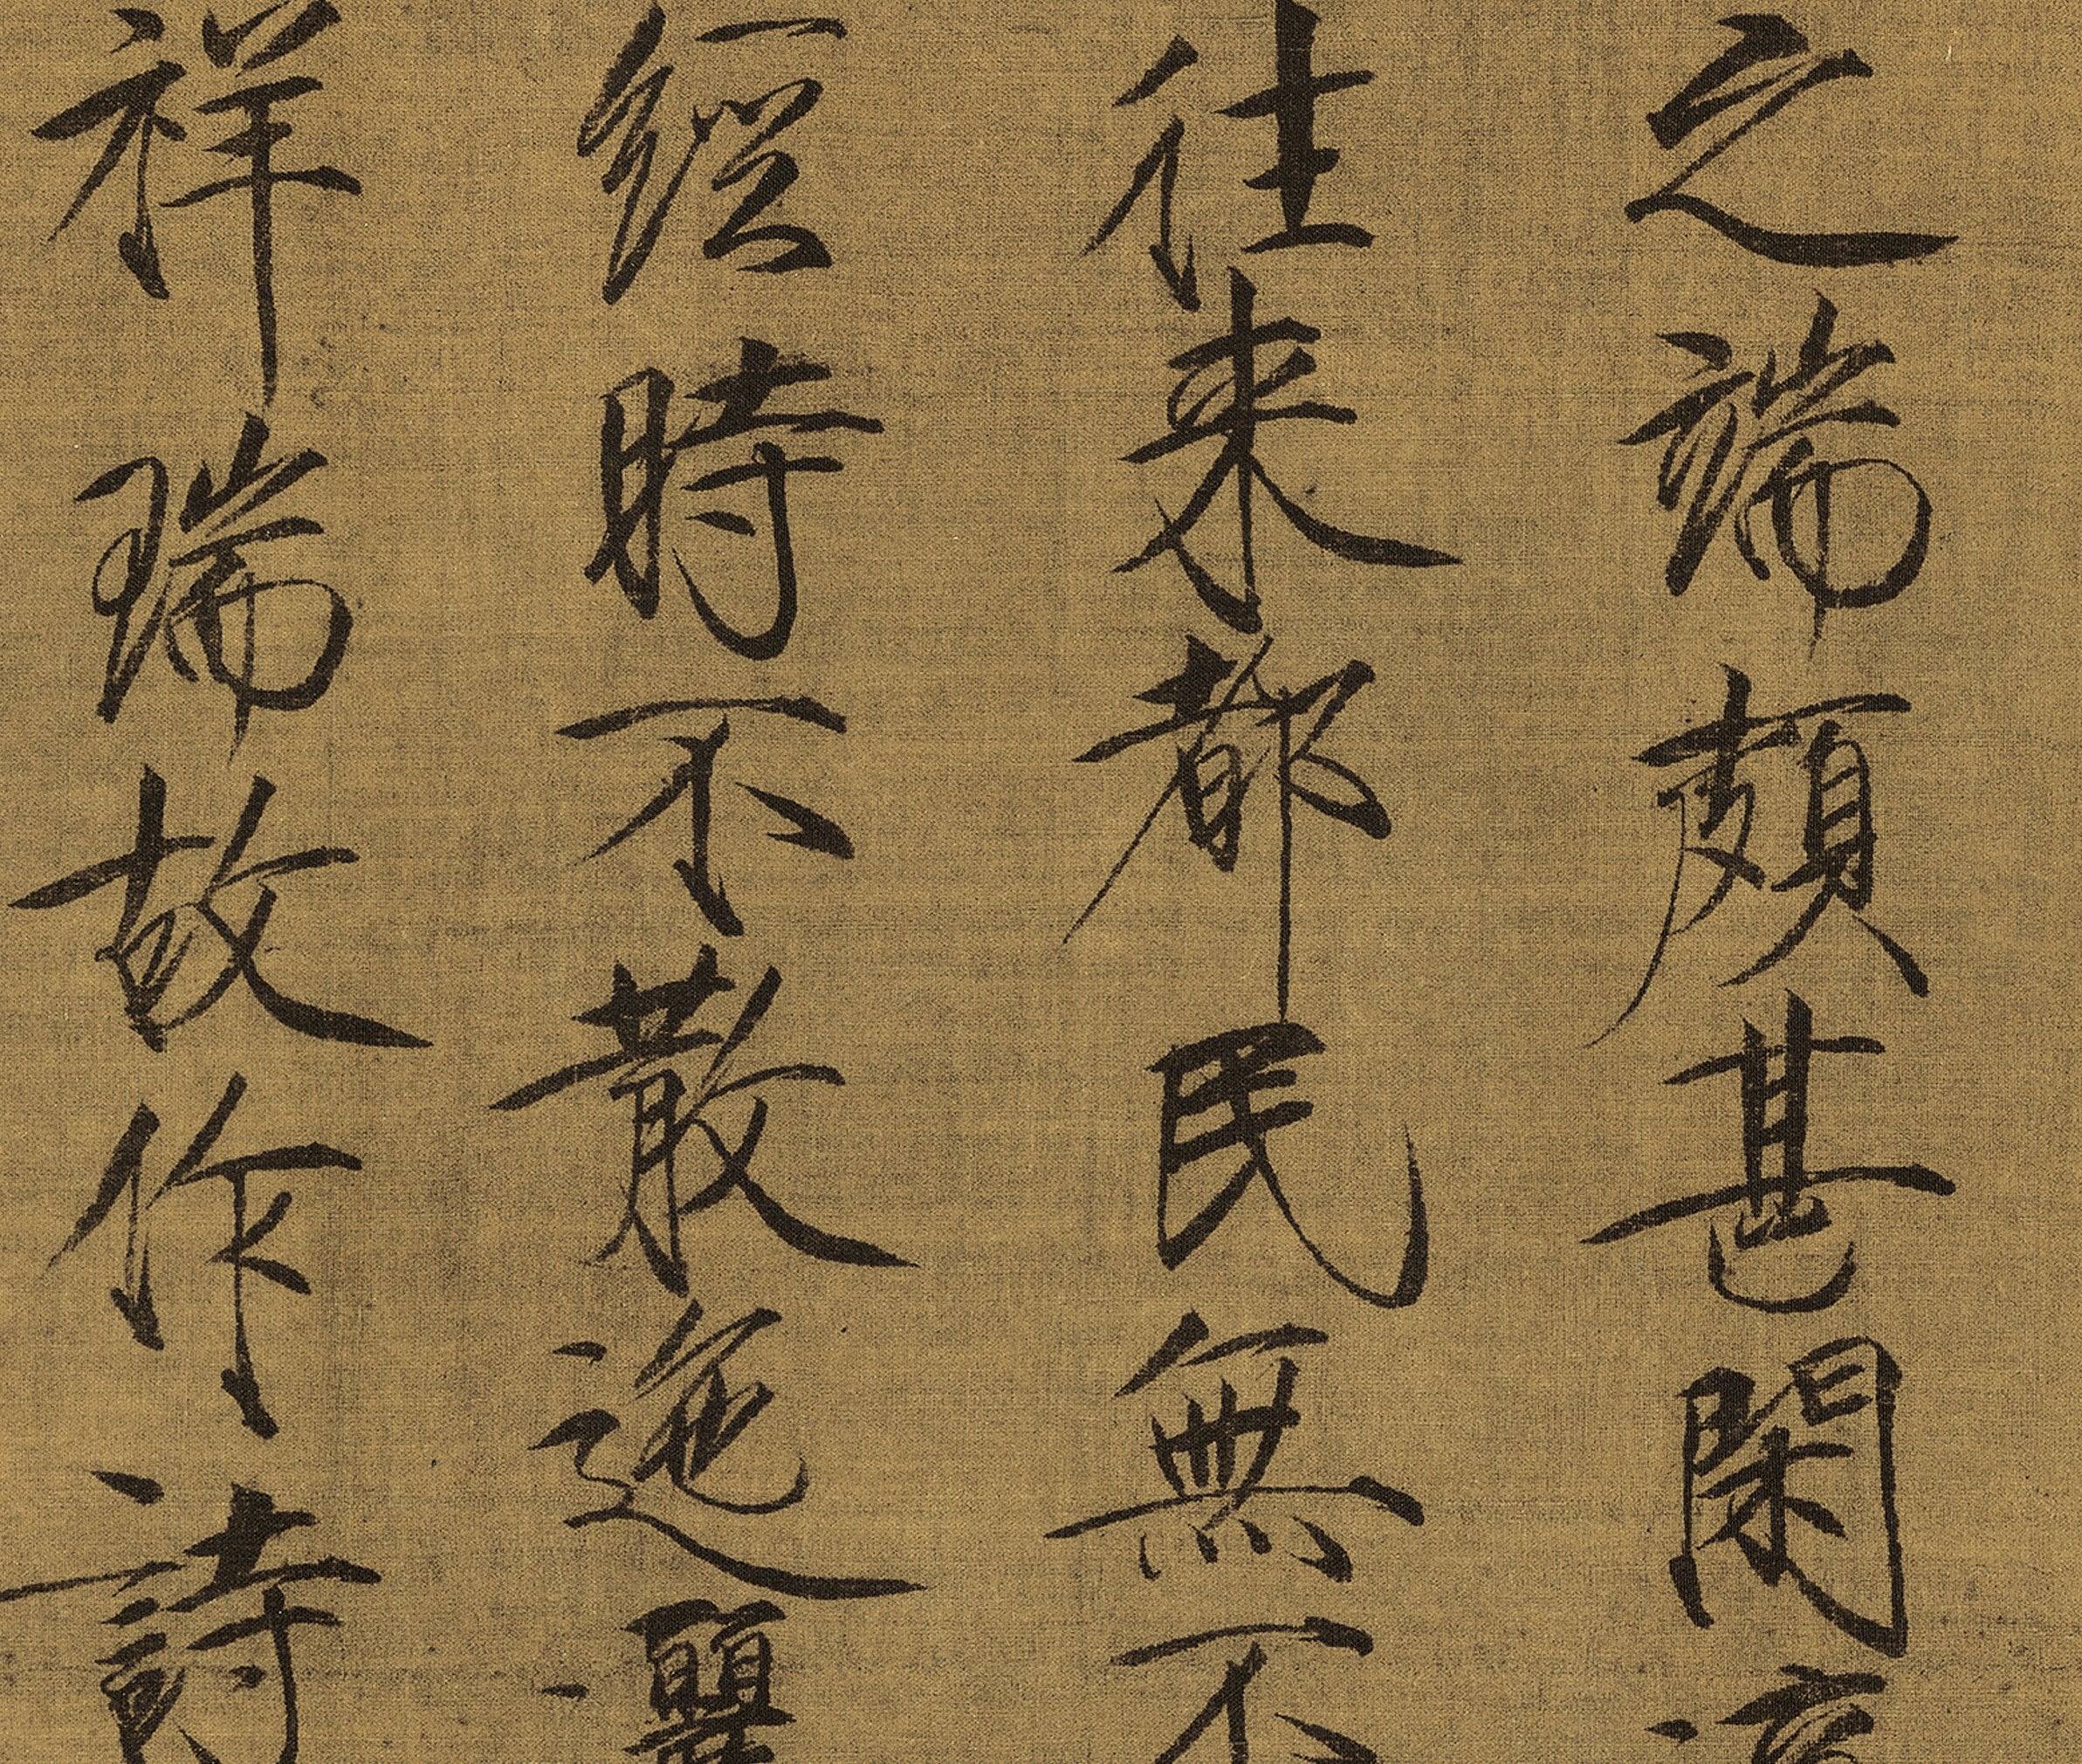 之端頗甚閑
往来都民無不
經時不散迤
祥瑞故作詩